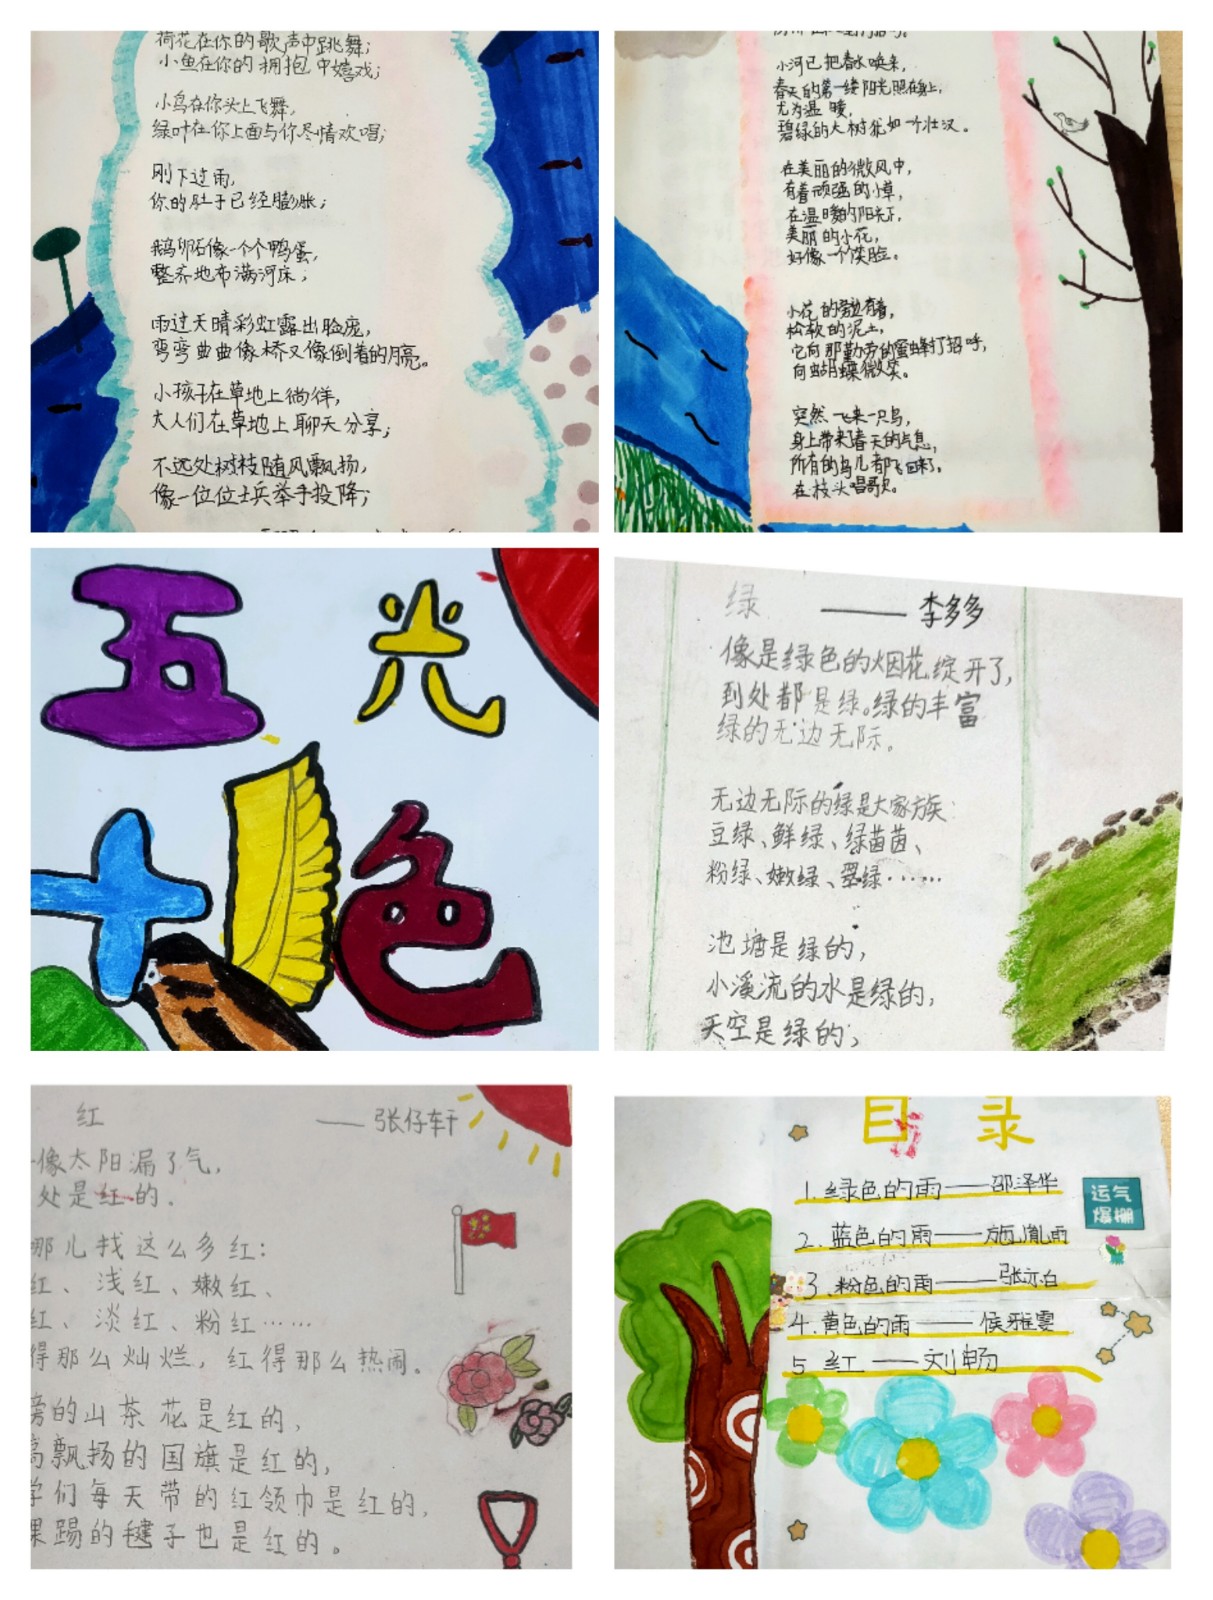 荷花在你的歌声中跳舞；
小鱼在你的拥抱中嬉戏；
小鸟在你头上飞舞，
绿叶在你上面与你尽情欢唱；
刚下过雨，
你的肚子已经膨胀；
鹅卵石像一个个鸭蛋，
整齐地布满河床；
雨过天晴彩虹露出脸庞，
弯弯曲曲像桥又像倒着的月亮。
小孩子在草地上徜徉，
大人们在草地上聊天分享；
不远处树枝随风飘扬，
像一位位士兵举手投降；
小河已把春水唤来，
春天的第一缕阳光照在身上，
尤为温暖，
碧绿的大树犹如一个壮汉。
在美丽的微风中，
有着顽强的小草，
在温暖的阳光下，
美丽的小花，
好像一个笑脸。
小花的旁边有着，
松软的泥土，
它向那勤劳的蜜蜂打了招呼，
向蝴蝶微笑。
突然飞来一只鸟，
身上带来了春天的气息，
所有的鸟儿都飞回来了，
在枝头唱歌。
五光
十色
绿 —— 李多多
像是绿色的烟花绽开了，
到处都是绿。绿的丰富
绿的无边无际。
无边无际的绿是大家族：
豆绿、鲜绿、绿茵茵、
粉绿、嫩绿、翠绿……
池塘是绿的，
小溪流的水是绿的，
天空是绿的；
红 —— 张仔轩
像太阳漏了气，
处是红的．
那儿找这么多红：
红、浅红、嫩红、
红、淡红、粉红……
得那么灿烂，红得那么热闹。
旁的山茶花是红的，
高飘扬的国旗是红的，
学们每天带的红领巾是红的，
果踢的毽子也是红的。
目录
1.绿色的雨——邵泽华
2.蓝色的雨——施胤雨
3.粉色的雨——张亦白
4.黄色的雨——侯雅雯
5 红——刘畅
运气
爆棚